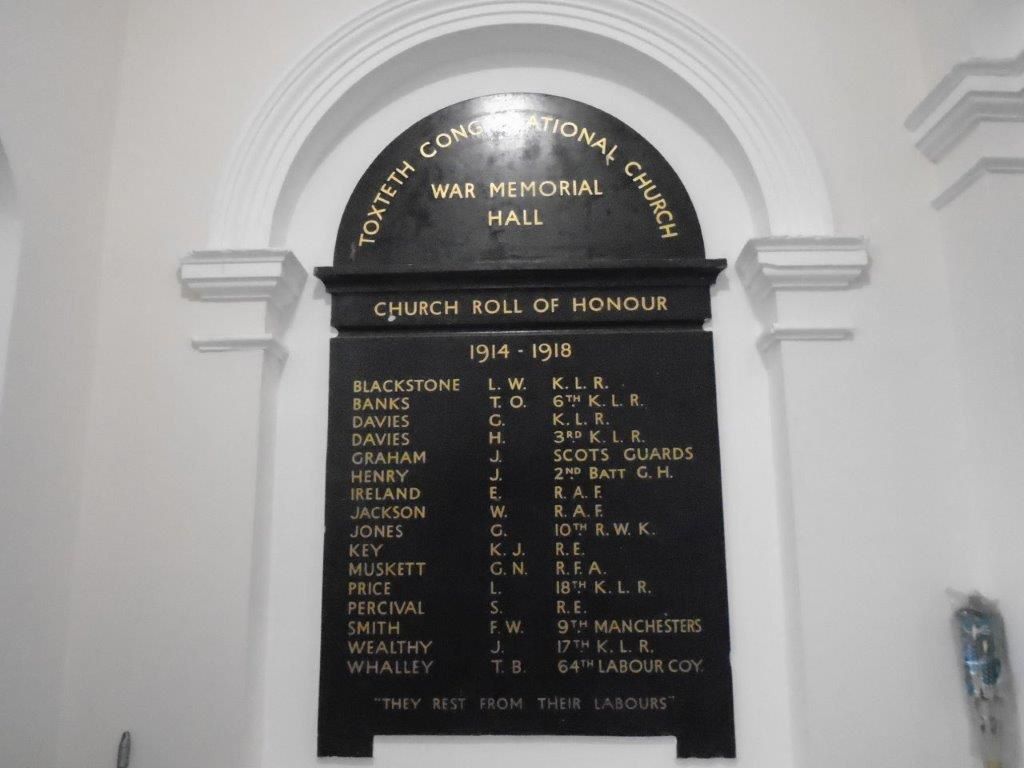 TOXTETH CONGREGATIONAL CHURCH
WAR MEMORIAL
HALL
CHURCH ROLL OF HONOUR
1914 - 1918
BLACKSTONE L. W. K. L. R.
BANKS T. O. 6TH K. L. R.
DAVIES G. K. L. R.
DAVIES H. 3RD K. L. R.
GRAHAM J. SCOTS GUARDS
HENRY J. 2ND BATT G. H.
IRELAND E. R. A. F.
JACKSON W. R. A. F.
JONES G. 10TH R. W. K.
KEY K. J. R. E.
MUSKETT G. N. R. F. A.
PRICE L. 18TH K. L. R.
PERCIVAL S. R. E.
SMITH F. W. 9TH MANCHESTERS
WEALTHY J. 17TH K. L. R.
WHALLEY T. B. 64TH LABOUR COY.
"THEY REST FROM THEIR LABOURS"